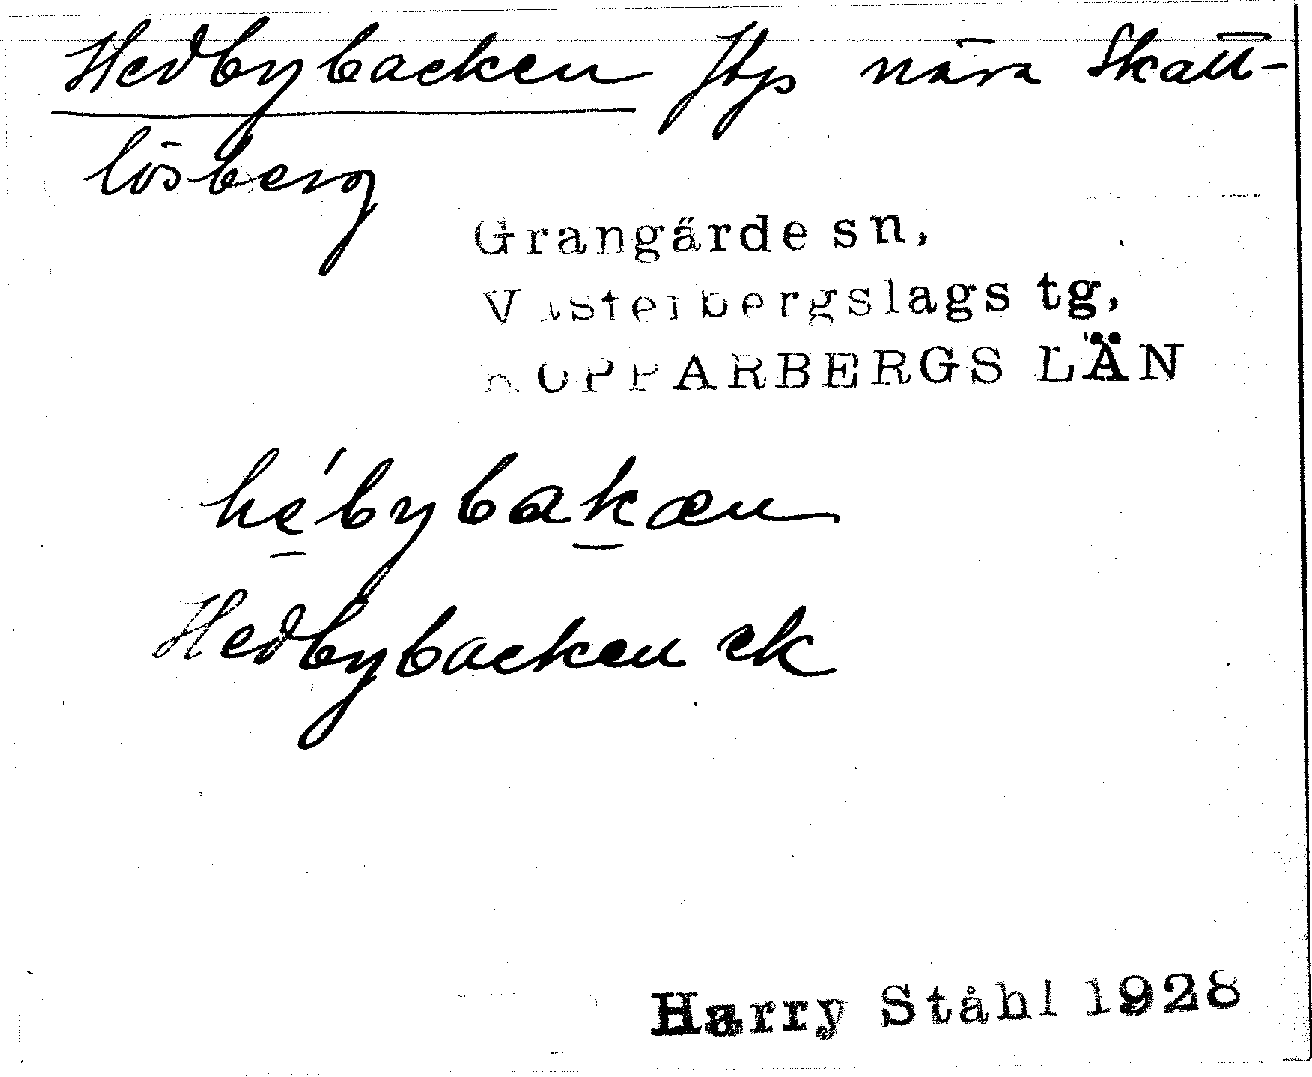 Hedbybacken ftps nära Skatt-
lösberg
Grangärde sn,
Västerbergslags tg,
KOPPARBERGS LÄN
hé̱byba̱kæn
Hedbybacken ek
Harry Ståhl 1928